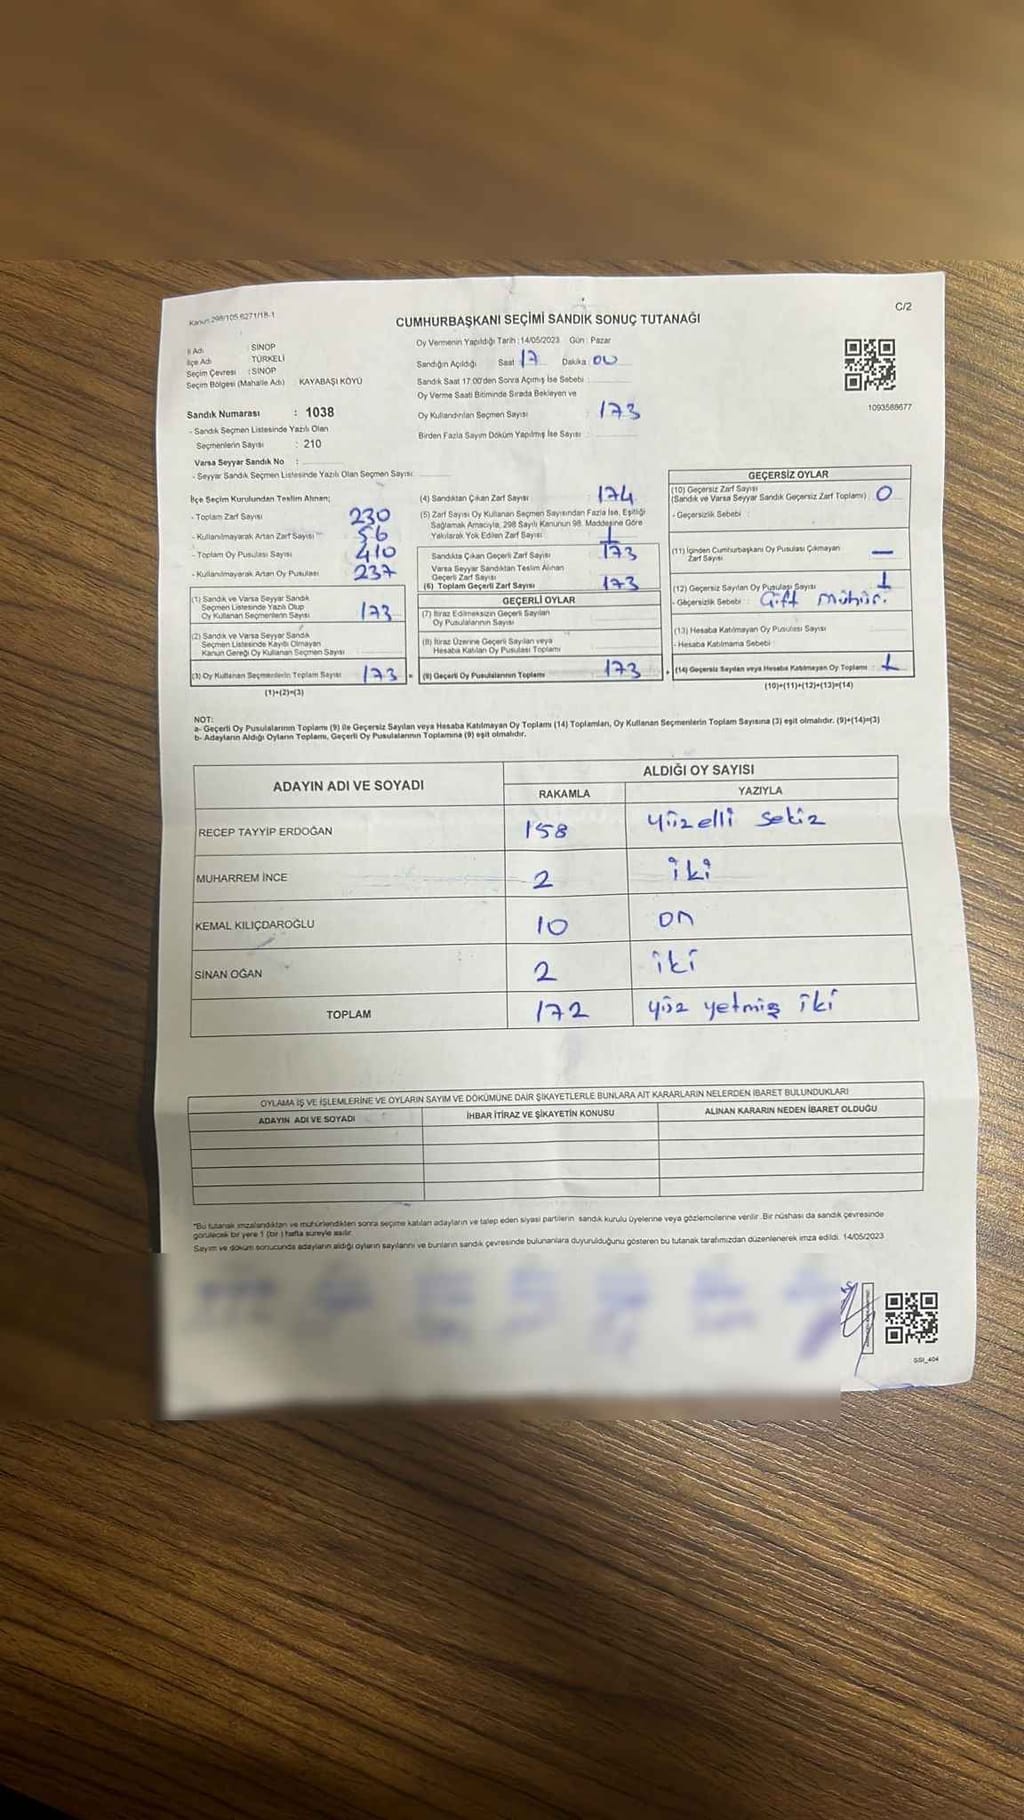 Kanun 298/105 6271/18-1
C/2
CUMHURBAŞKANI SEÇİMİ SANDIK SONUÇ TUTANAĞI
İl Adı : SİNOP
İlçe Adı : TÜRKELİ
Seçim Çevresi : SİNOP
Seçim Bölgesi (Mahalle Adı) KAYABAŞI KÖYÜ
Sandık Numarası : 1038
- Sandık Seçmen Listesinde Yazılı Olan
Seçmenlerin Sayısı : 210
Varsa Seyyar Sandık No :
- Seyyar Sandık Seçmen Listesinde Yazılı Olan Seçmen Sayısı:
Oy Vermenin Yapıldığı Tarih :14/05/2023 Gün : Pazar
Sandığın Açıldığı Saat 17 Dakika : 00
Sandık Saat 17:00'den Sonra Açımış İse Sebebi :
Oy Verme Saati Bitiminde Sırada Bekleyen ve
Oy Kullandırılan Seçmen Sayısı : 173
Birden Fazla Sayım Döküm Yapılmış İse Sayısı :
1093588677
İlçe Seçim Kurulundan Teslim Alınan;
- Toplam Zarf Sayısı 230
- Kullanılmayarak Artan Zarf Sayısı 56
- Toplam Oy Pusulası Sayısı 410
- Kullanılmayarak Artan Oy Pusulası 237
(1) Sandık ve Varsa Seyyar Sandık
Seçmen Listesinde Yazılı Olup
Oy Kullanan Seçmenlerin Sayısı 173
(2) Sandık ve Varsa Seyyar Sandık
Seçmen Listesinde Kayıtlı Olmayan
Kanun Gereği Oy Kullanan Seçmen Sayısı
(3) Oy Kullanan Seçmenlerin Toplam Sayısı 173
(1)+(2)=(3)
(4) Sandıktan Çıkan Zarf Sayısı : 174
(5) Zarf Sayısı Oy Kullanan Seçmen Sayısından Fazla İse, Eşitliği
Sağlamak Amacıyla, 298 Sayılı Kanunun 98. Maddesine Göre
Yakılarak Yok Edilen Zarf Sayısı : 1
Sandıkta Çıkan Geçerli Zarf Sayısı : 173
Varsa Seyyar Sandıktan Teslim Alınan
Geçerli Zarf Sayısı
(6) Toplam Geçerli Zarf Sayısı 173
GEÇERLİ OYLAR
(7) İtiraz Edilmeksizin Geçerli Sayılan
Oy Pusulalarının Sayısı
(8) İtiraz Üzerine Geçerli Sayılan veya
Hesaba Katılan Oy Pusulası Toplamı
= (9) Geçerli Oy Pusulalarının Toplamı : 173
GEÇERSİZ OYLAR
(10) Geçersiz Zarf Sayısı
(Sandık ve Varsa Seyyar Sandık Geçersiz Zarf Toplamı) 0
- Geçersizlik Sebebi :
(11) İçinden Cumhurbaşkanı Oy Pusulası Çıkmayan
Zarf Sayısı —
(12) Geçersiz Sayılan Oy Pusulası Sayısı 1
- Geçersizlik Sebebi : Çift mühür.
(13) Hesaba Katılmayan Oy Pusulası Sayısı
- Hesaba Katılmama Sebebi :
+ (14) Geçersiz Sayılan veya Hesaba Katılmayan Oy Toplamı : 1
(10)+(11)+(12)+(13)=(14)
NOT:
a- Geçerli Oy Pusulalarının Toplamı (9) ile Geçersiz Sayılan veya Hesaba Katılmayan Oy Toplamı (14) Toplamları, Oy Kullanan Seçmenlerin Toplam Sayısına (3) eşit olmalıdır. (9)+(14)=(3)
b- Adayların Aldığı Oyların Toplamı, Geçerli Oy Pusulalarının Toplamına (9) eşit olmalıdır.
ADAYIN ADI VE SOYADI
ALDIĞI OY SAYISI
RAKAMLA YAZIYLA
RECEP TAYYİP ERDOĞAN 158 yüzelli sekiz
MUHARREM İNCE 2 iki
KEMAL KILIÇDAROĞLU 10 on
SİNAN OĞAN 2 iki
TOPLAM 172 yüz yetmiş iki
OYLAMA İŞ VE İŞLEMLERİNE VE OYLARIN SAYIM VE DÖKÜMÜNE DAİR ŞİKAYETLERLE BUNLARA AİT KARARLARIN NELERDEN İBARET BULUNDUKLARI
ADAYIN ADI VE SOYADI İHBAR İTİRAZ VE ŞİKAYETİN KONUSU ALINAN KARARIN NEDEN İBARET OLDUĞU
*Bu tutanak imzalandıktan ve mühürlendikten sonra seçime katılan adayların ve talep eden siyasi partilerin sandık kurulu üyelerine veya gözlemcilerine verilir. Bir nüshası da sandık çevresinde
görülecek bir yere 1 (bir ) hafta süreyle asılır.
Sayım ve döküm sonucunda adayların aldığı oyların sayılarını ve bunların sandık çevresinde bulunanlara duyurulduğunu gösteren bu tutanak tarafımızdan düzenlenerek imza edildi. 14/05/2023
SSI_404